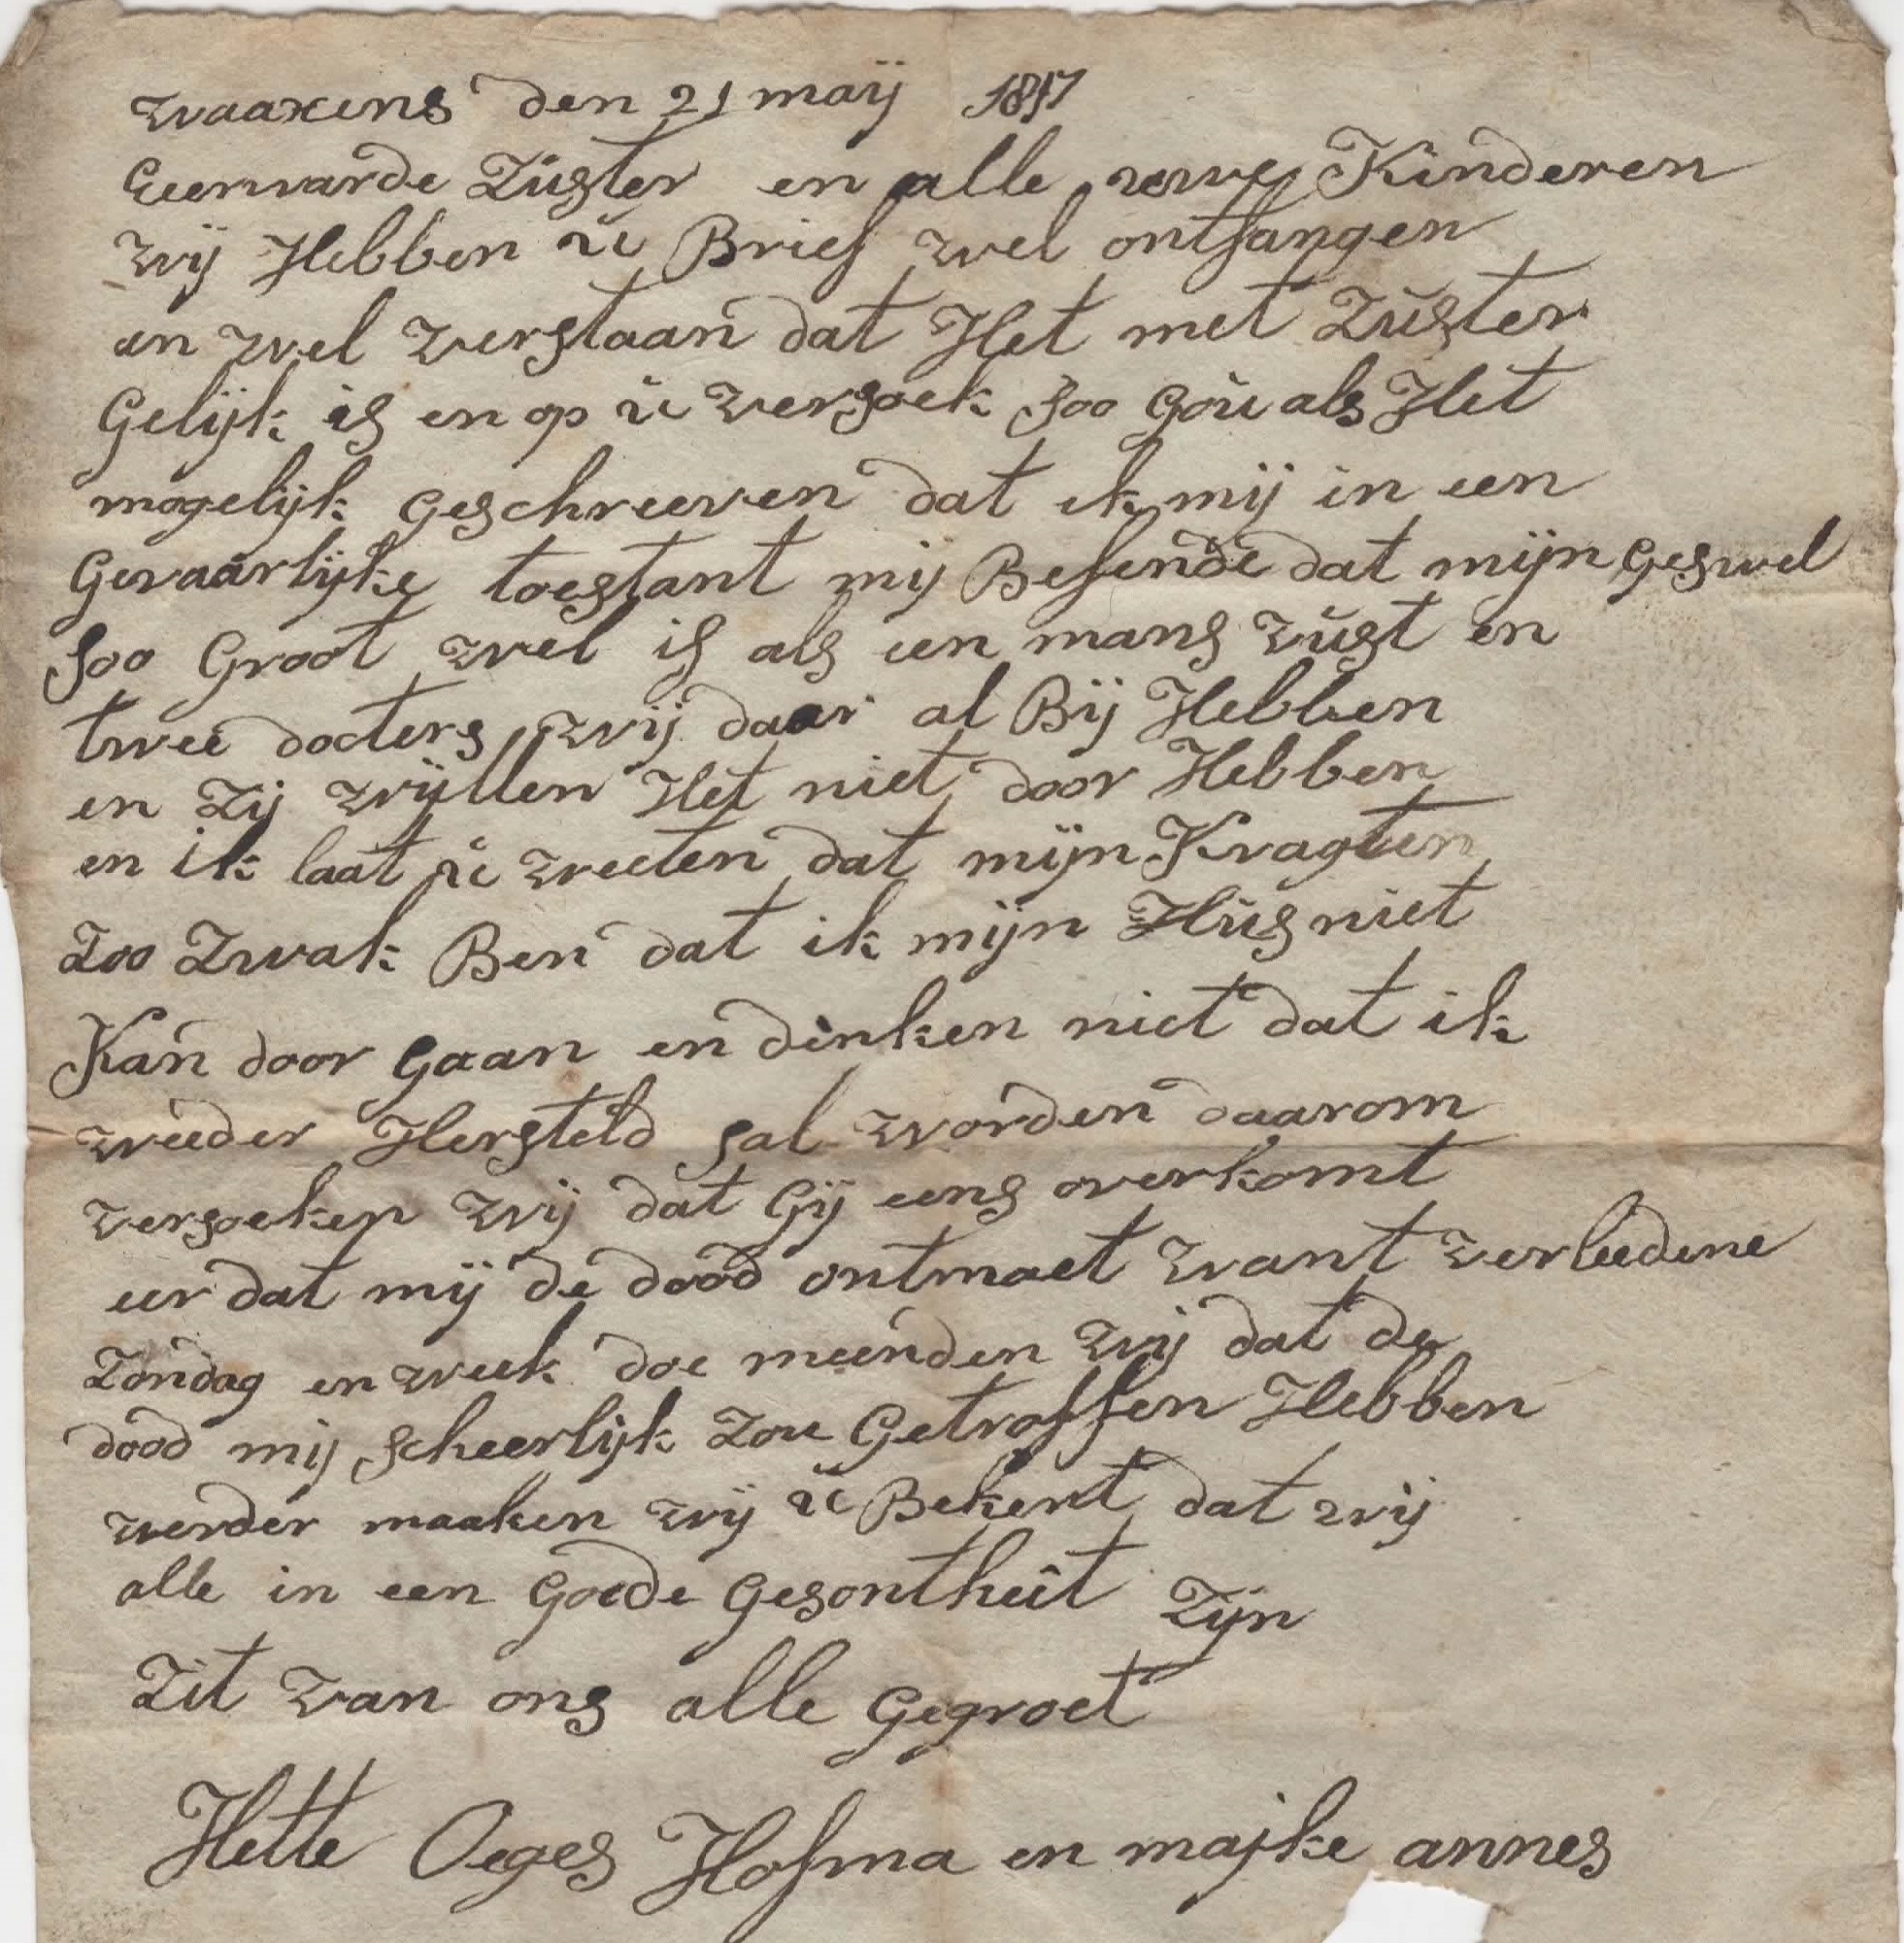 waaxens den 21 maij 1817
Eeerwarde Zuster en alle uwe Kinderen
wij Hebben u Brief wel ontfangen
en wel verstaan dat Het met Zuster
Gelijk is en op u versoek soo Gou als Het
mogelijk Geschreeven dat ik mij in een
Gevaarlijke toestant mij Befende dat mijn Geswel
soo Groot wel is als een mans vust en
twee docters wij daar al Bij Hebben
en Zij wijllen Het niet door Hebben
en ik laat u weeten dat mijn Kragten
Zoo Zwak Ben dat ik mijn Hus niet
Kan door Gaan en dinken niet dat ik
weeder Hersteld sal worden daarom
versoeken wij dat Gij eens overkomt
eer dat mij de dood ontmoet want verleedene
Zondag en week doe meenden wij dat de
dood mij scheerlijk Zou Getroffen Hebben
verder maaken wij u Bekent dat wij
alle in een Goede Gesontheit Zijn
Zit van ons alle Gegroet
Hette Oeges Hofma en majke annes